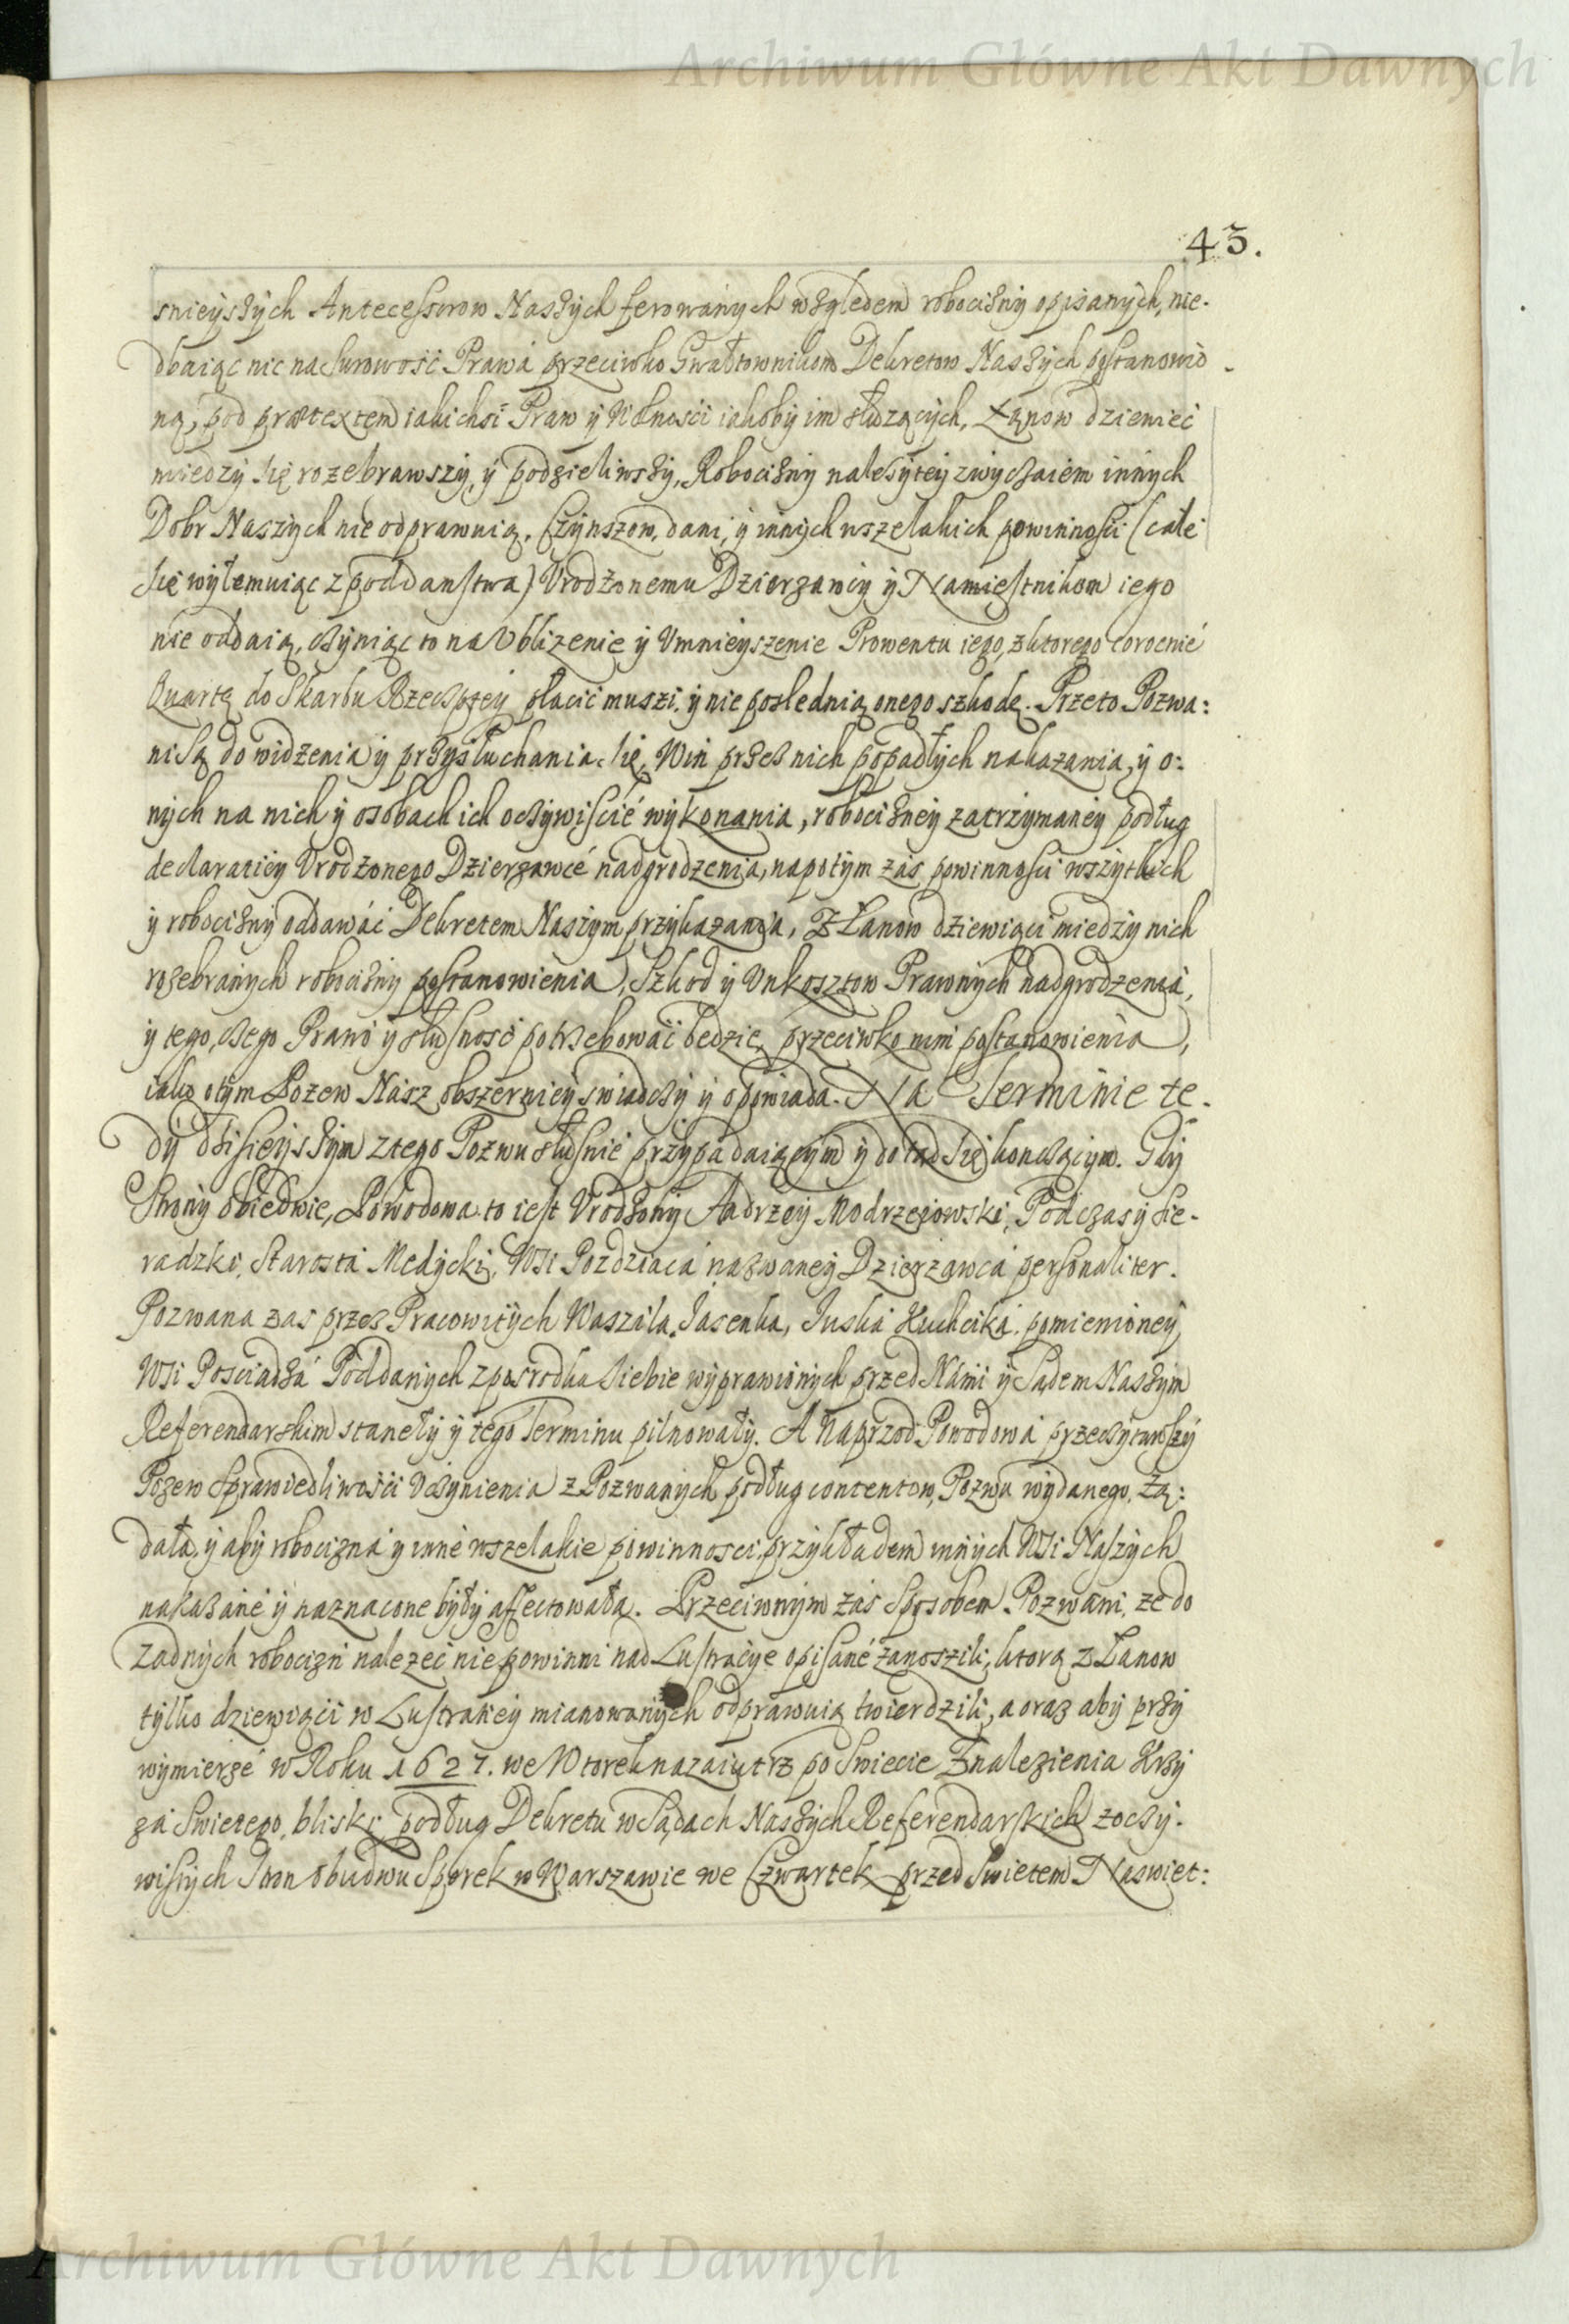 Archiwum Główne Akt Dawnych
43.
snieyszych Antecessorow Naszych ferowanych względem robocizny opisanych, nie-
dbaiąc nic na surowość Prawa przeciwko Gwałtownikom Dekretow Naszych postanowio-
ną, pod prætextem iakichsi Praw y Wolnosci iakoby im słuzących, Łanow dziewieć
miedzy się rozebrawszy, y podzieliwszy, Robocizny nalezytey zwyczaiem innych
Dobr Naszych nie odprawuią. Czynszow, dani, y innych wszelakich powinnosci (cale
się wyłemuiąc z poddanstwa) Vrodzonemu Dzierzawcy y Namiestnikom iego
nie oddaią, czyniąc to na Vblizenie y Vmnieyszenie Prowentu iego, z ktorego corocnie
Quartę do Skarbu Rzeczptey płacić muszi, y nie poslednią onego szkodę. Przeto Pozwa:
ni są do widzenia y przysłuchania się, Win przez nich popadłych nakazania, y o:
nych na nich y osobach ich oczywiscie wykonania, robocizney zatrzymaney podług
declaratiey Vrodzonego Dzierzawce nadgrodzenia, napotym zas powinnosci wszytkich
y robocizny oddawać Dekretem Naszym przykazania, Z Łanow dziewiąci miedzy nich
rozebranych robocizny postanowienia, Szkod y Vnkosztow Prawnych nadgrodzenia,
y tego, czego Prawo y słusność potrzebować bedzie, przeciwko nim postanowienia,
iako o tym Pozew Nasz obszerniey swiadczy y opowiada. Na Terminie te-
dy dzisieyszym z tego Pozwu słusnie przypadaiącym y dotąd się konczącym. Gdy
Strony obiedwie, Powodowa to iest Vrodzony Andrzey Modrzejowski, Podczaszy Sie-
radzki, Starosta Medycki, Wsi Pozdziaca nazwaney Dzierzawca personaliter.
Pozwana zas przez Pracowitych Waszila, Jasenka, Juska Kuchcika pomienioney
Wsi Posciadza Poddanych z posrodka siebie wyprawionych przed Nami y Sądem Naszym
Referendarskim staneły y tego Terminu pilnowały. A Naprzod Powodowa przeczytawszy
Pozew sprawiedliwosci vczynienia z Pozwanych podług contentow, Pozwu wydanego, zą:
dała, y aby robocizna y inne wszelakie powinnosci przykładem innych Wsi Naszych
nakazane y naznacone były affectowała. Przeciwnym zas Sposobem Pozwani, ze do
zadnych robocizn nalezeć nie powinni nad Lustracye opisane zanoszili, ktorą z Łanow
tylko dziewiąci w Lustraciey mianowanych odprawuią twierdzili, a oraz aby przy
wymierze w Roku 1627. we Wtorek nazaiutrz po Swiecie Znalezienia Krzy
za Swietego, bliski podług Dekretu w Sądach Naszych Referendarskich z oczy-
wistych Stron obudwu Sporek w Warszawie we Czwartek przed Swietem Naswiet:
Archiwum Główne Akt Dawnych